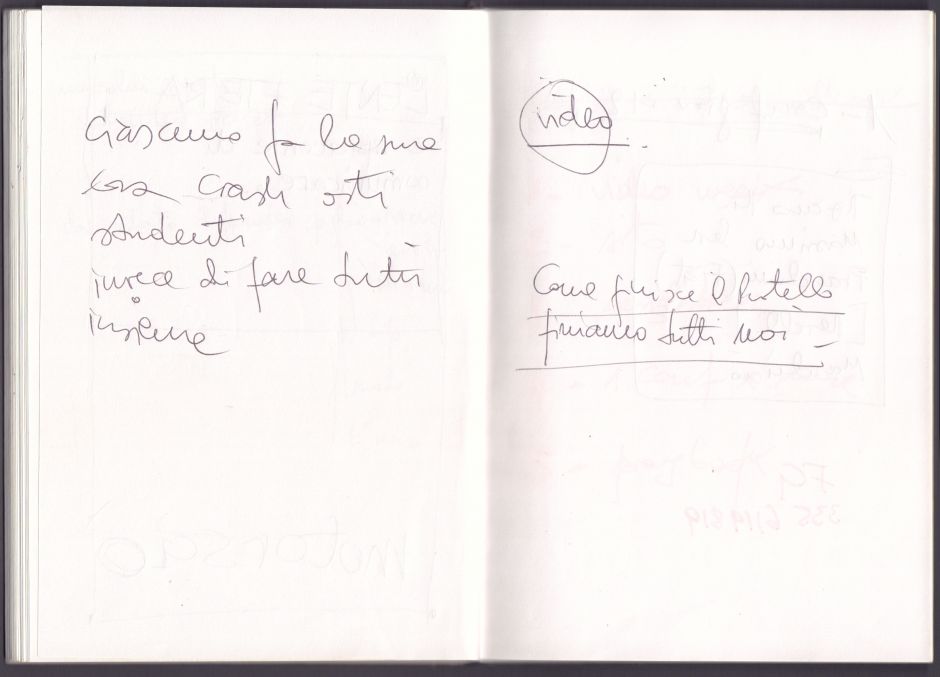 Ciascuno fa la sua
cosa crash osti
studenti
invece di fare tutti
insieme
video
Come finisce il
finiamo tutti noi -